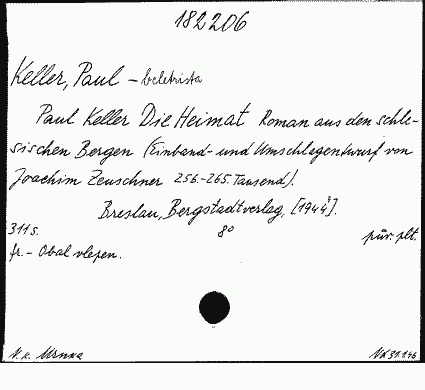 182206
Keller, Paul – beletrista
Paul Keller Die Heimat Roman aus den schle-
sischen Bergen (Einband- und Umschlagentwurf von
Joachim Zeuschner 256.-265. Tausend).
Breslau, Bergstadtverlag, [1944].
311 s. 8° pův. plt.
fr. – Obal vlepen.
N. k.